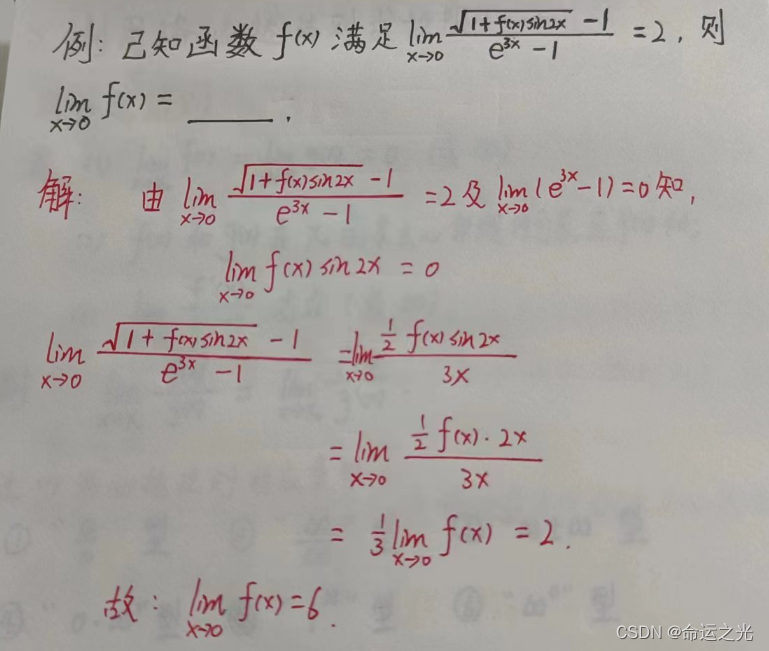 例: 已知函数 f(x) 满足 lim_{x→0} \frac{\sqrt{1+f(x)sin2x} - 1}{e^{3x} - 1} = 2, 则
lim_{x→0} f(x) = ______ .
解: 由 lim_{x→0} \frac{\sqrt{1+f(x)sin2x} - 1}{e^{3x} - 1} = 2 及 lim_{x→0} (e^{3x} - 1) = 0 知,
lim_{x→0} f(x) sin2x = 0
lim_{x→0} \frac{\sqrt{1+f(x)sin2x} - 1}{e^{3x} - 1} = lim_{x→0} \frac{\frac{1}{2} f(x) sin2x}{3x}
= lim_{x→0} \frac{\frac{1}{2} f(x) · 2x}{3x}
= \frac{1}{3} lim_{x→0} f(x) = 2 .
故: lim_{x→0} f(x) = 6 .
CSDN @命运之光